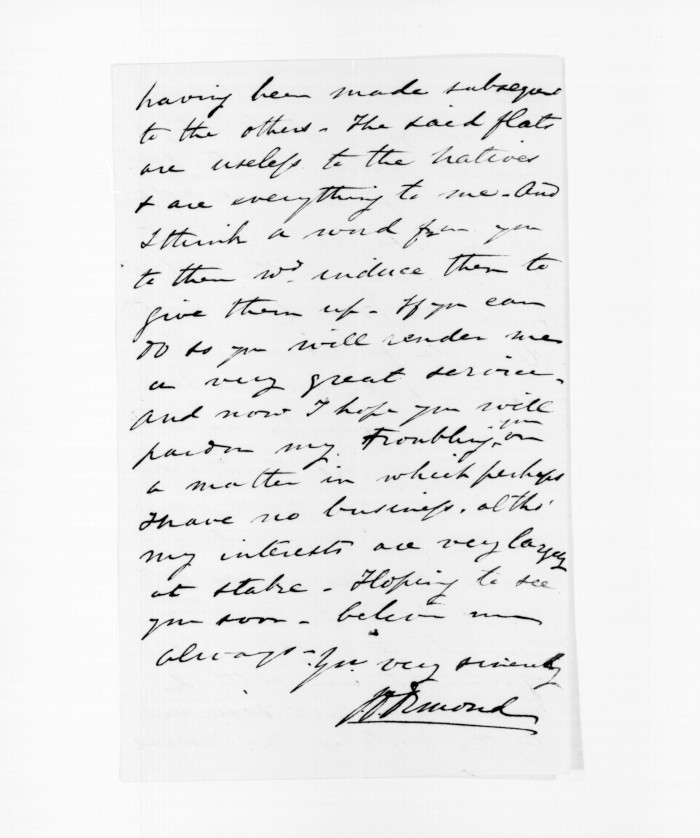 having been made subsequent
to the others - The said flats
are useless to the natives
& are everything to me - And
I think a word from you
to them wd. induce them to
give them up - If you can
do so you will render me
a very great service -
and now I hope you will
pardon my troubling you on
a matter in which perhaps
I have no business, altho'
my interests are very largely
at stake - Hoping to see
you soon - believe me
always - Yrs. very sincerely
JD Ormond